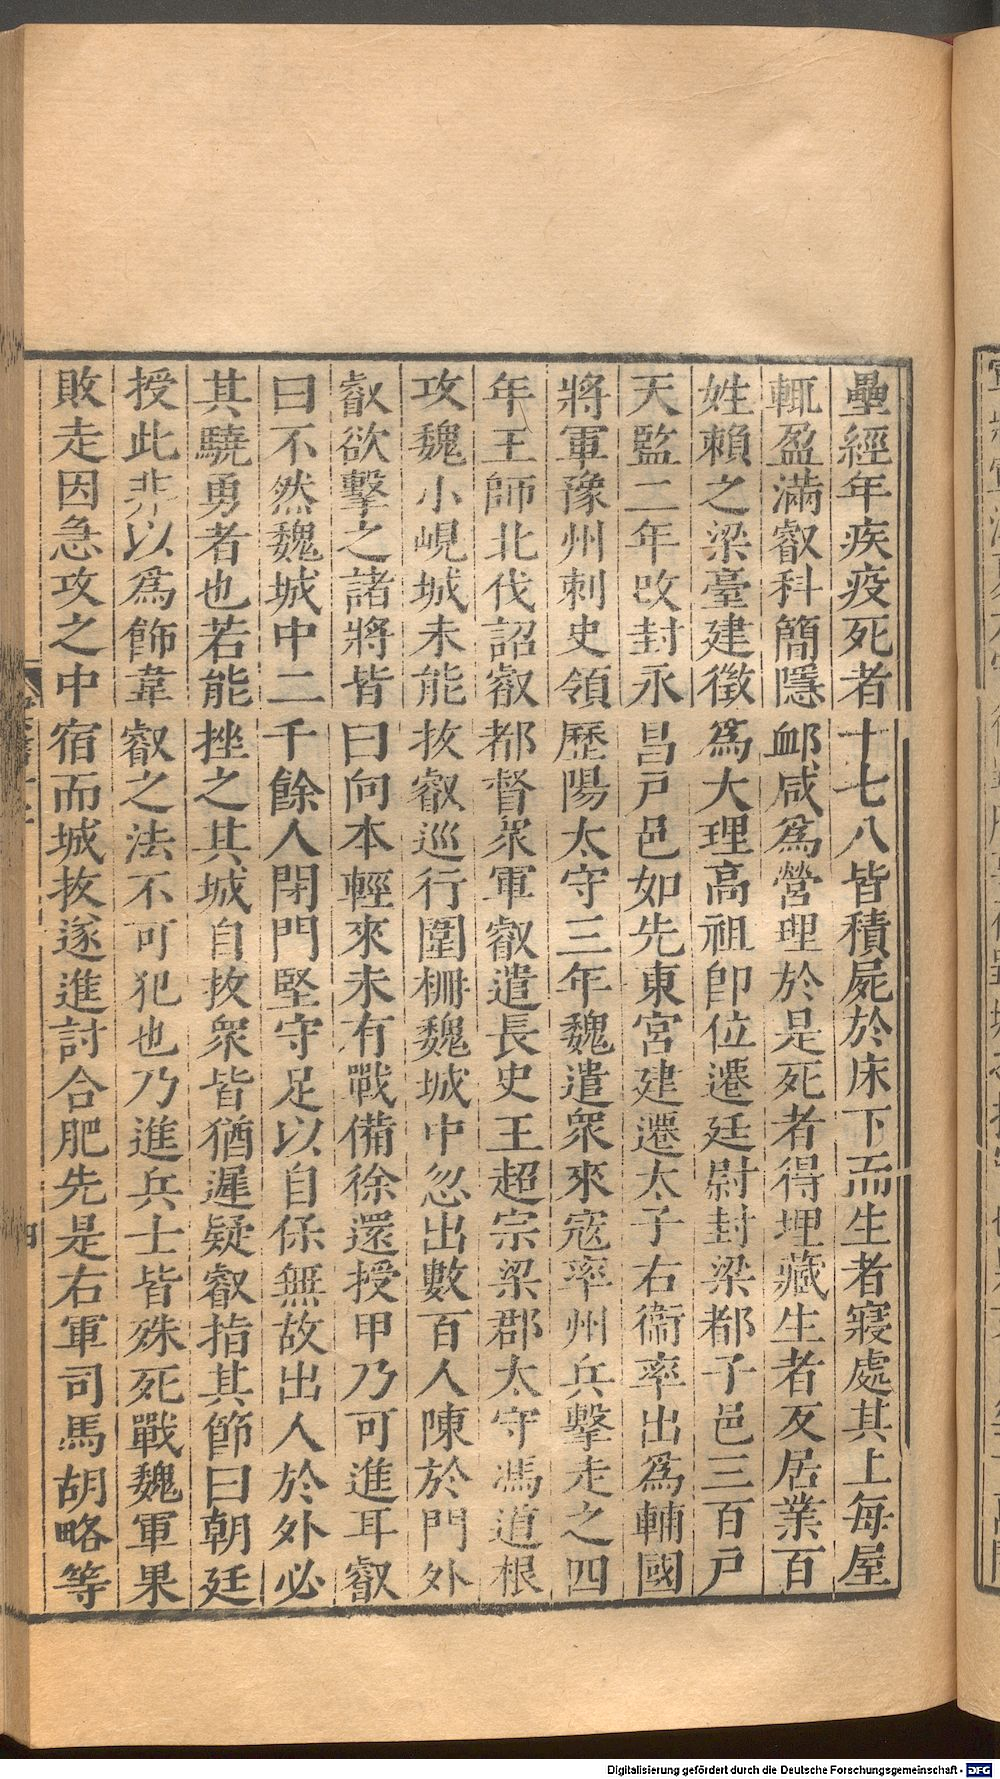 壘經年疾疫死者十七八皆積屍於床下而生者寢處其上每屋
輒盈滿叡科簡隱䘏咸爲營理於是死者得埋藏生者反居業百
姓賴之梁臺建徵爲大理高祖卽位遷廷尉封梁都子邑三百戸
天監二年改封永昌戸邑如先東宮建遷太子右衞率出爲輔國
將軍豫州刺史領歷陽太守三年魏遣衆來寇率州兵擊走之四
年王師北伐詔叡都督衆軍叡遣長史王超宗梁郡太守馮道根
攻魏小峴城未能拔叡巡行圍柵魏城中忽出數百人陳於門外
叡欲擊之諸將皆曰向本輕來未有戰備徐還授甲乃可進耳叡
曰不然魏城中二千餘人閉門堅守足以自保無故出人於外必
其驍勇者也若能挫之其城自拔衆皆猶遲疑叡指其節曰朝廷
授此非以爲飾韋叡之法不可犯也乃進兵士皆殊死戰魏軍果
敗走因急攻之中宿而城拔遂進討合肥先是右軍司馬胡略等
四
Digitalisierung gefördert durch die Deutsche Forschungsgemeinschaft - DFG